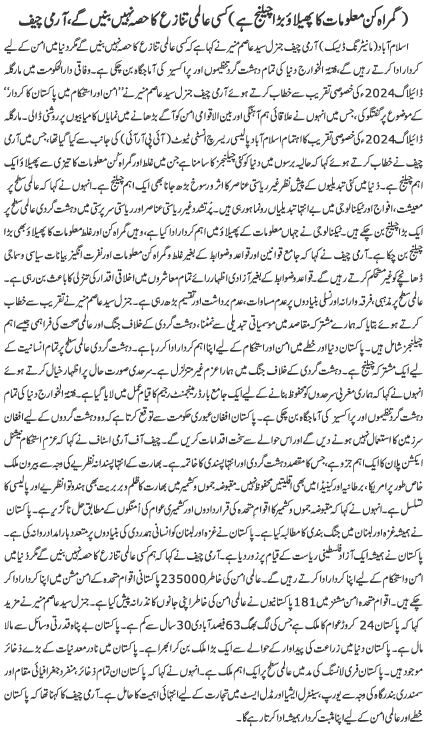 (گمراہ کن معلومات کا پھیلاؤ بڑا چیلنج ہے) کسی عالمی تنازع کا حصہ نہیں بنیں گے، آرمی چیف
اسلام آباد (مانیٹرنگ ڈیسک) آرمی چیف جنرل سید عاصم منیر نے کہا ہے کہ کسی عالمی تنازع کا حصہ نہیں بنیں گے مگر دنیا میں امن کے لیے
کردار ادا کرتے رہیں گے، فتنۃ الخوارج دنیا کی تمام دہشت گرد تنظیموں اور پراکسیز کی آماجگاہ بن چکی ہے۔ وفاقی دارالحکومت میں مارگلہ
ڈائیلاگ 2024ء کی خصوصی تقریب سے خطاب کرتے ہوئے آرمی چیف جنرل سید عاصم منیر نے ”امن اور استحکام میں پاکستان کا کردار“
کے موضوع پر گفتگو کی، جس میں
ڈائیلاگ 2024ء کی خصوصی تقریب کا اہتمام اسلام آباد پالیسی ریسرچ انسٹی ٹیوٹ (آئی پی آر آئی) کی جانب سے کیا گیا تھا، جس میں آرمی
چیف نے خطاب کرتے ہوئے کہا کہ حالیہ برسوں میں دنیا کو کئی چیلنجز کا سامنا ہے جن میں غلط اور گمراہ کن معلومات کا تیزی سے پھیلاؤ ایک
اہم چیلنج ہے۔ دنیا میں کئی تبدیلیوں کے پیش نظر غیر ریاستی عناصر کا اثر و رسوخ بڑھ جانا بھی ایک اہم چیلنج ہے۔ انہوں نے کہا کہ عالمی سطح پر
معیشت، افواج اور ٹیکنالوجی میں بے انتہا تبدیلیاں رونما ہو رہی ہیں۔ پرتشدد غیر ریاستی عناصر اور ریاستی سرپرستی میں دہشت گردی عالمی سطح پر
ایک بڑا چیلنج بن چکے ہیں۔ ٹیکنالوجی نے جہاں معلومات کے پھیلاؤ میں اہم کردار ادا کیا ہے، وہیں گمراہ کن اور غلط معلومات کا پھیلاؤ بھی ایک
بڑا چیلنج ہے۔ آرمی چیف نے کہا کہ جامع قوانین اور قواعد و ضوابط کے بغیر غلط و گمراہ کن معلومات اور نفرت انگیز بیانات سیاسی و سماجی
ڈھانچے کو غیر مستحکم کرتے رہیں گے۔ قواعد و ضوابط کے بغیر آزادی اظہار رائے تمام معاشروں میں اخلاقی اقدار کی تنزلی کا باعث بن رہی ہے۔
عالمی سطح پر مذہبی، فرقہ وارانہ اور نسلی بنیادوں پر عدم مساوات، عدم برداشت اور تقسیم بڑھ رہی ہے۔ جنرل سید عاصم منیر نے تقریب سے خطاب
کرتے ہوئے بتایا کہ ہمارے مشترکہ مقاصد میں موسمیاتی تبدیلی سے نمٹنا، دہشت گردی کے خلاف جنگ اور عالمی صحت کی فراہمی جیسے اہم
چیلنجز شامل ہیں۔ پاکستان دنیا اور خطے میں امن اور استحکام کے لیے اپنا اہم کردار ادا کر رہا ہے۔ دہشت گردی عالمی سطح پر تمام انسانیت کے لیے
ایک مشترکہ چیلنج ہے۔ دہشت گردی کے خلاف جنگ میں پاکستان کا عزم غیر متزلزل ہے۔ سرحدی صورت حال پر اظہار خیال کرتے ہوئے
انہوں نے کہا کہ ہماری مغربی سرحدوں کو محفوظ بنانے کے لیے ایک جامع بارڈر مینجمنٹ رجیم کا قیام عمل میں لایا گیا ہے۔ فتنۃ الخوارج دنیا کی تمام
دہشت گرد تنظیموں اور پراکسیز کی آماجگاہ بن چکی ہے۔ پاکستان افغان عبوری حکومت سے توقع کرتا ہے کہ وہ دہشت گردی کے لیے افغان
سرزمین کا استعمال نہیں ہونے دیں گے اور اس حوالے سے سخت اقدامات کریں گے۔ چیف آف آرمی اسٹاف نے کہا کہ عزم استحکام نیشنل
ایکشن پلان کا ایک اہم جزو ہے، جس کا مقصد دہشت گردی اور انتہا پسندی کا خاتمہ ہے۔ بھارت کے انتہا پسندانہ نظریے کی وجہ سے بیرون ملک
خاص طور پر امریکا، برطانیہ اور کینیڈا میں بھی اقلیتیں محفوظ نہیں۔ مقبوضہ جموں و کشمیر میں بھارت کا ظلم و بربریت بھی ہندوتوا نظریے اور پالیسی کا
تسلسل ہے۔ مقبوضہ جموں و کشمیر کا اقوام متحدہ کی قراردادوں اور کشمیری عوام کی امنگوں کے مطابق حل ناگزیر ہے۔ انہوں نے کہا کہ پاکستان
نے ہمیشہ غزہ اور لبنان میں جنگ بندی کا مطالبہ کیا ہے۔ پاکستان نے غزہ اور لبنان کو انسانی ہمدردی کی بنیادوں پر متعدد بار امداد روانہ کی ہے۔
پاکستان نے ہمیشہ ایک آزاد فلسطینی ریاست کے قیام پر زور دیا ہے۔ آرمی چیف نے کہا کہ ہم کسی عالمی تنازع کا حصہ نہیں بنیں گے مگر دنیا میں
امن و استحکام کے لیے اپنا کردار ادا کرتے رہیں گے۔ عالمی امن کی خاطر 235000 پاکستانی اقوام متحدہ کے امن مشن میں اپنا کردار ادا کر
چکے ہیں۔ اقوام متحدہ امن مشنز میں 181 پاکستانیوں نے عالمی امن کی خاطر اپنی جانوں کا نذرانہ پیش کیا ہے۔ جنرل سید عاصم منیر نے مزید
کہا کہ پاکستان 24 کروڑ عوام کا ملک ہے جس کی لگ بھگ 63 فیصد آبادی 30 سال سے کم ہے۔ پاکستان بے پناہ قدرتی وسائل سے مالا
مال ہے۔ پاکستان دنیا میں زراعت کی پیداوار کے حوالے سے ایک بڑا ملک بن کر ابھرا ہے۔ پاکستان میں نادر معدنیات کے بڑے ذخائر
موجود ہیں۔ پاکستان فری لانسنگ کی مد میں عالمی سطح پر ایک اہم ملک ہے۔ انہوں نے کہا کہ پاکستان ان تمام ذخائر، منفرد جغرافیائی مقام اور
سمندری بندرگاہ کی وجہ سے یورپ، سینٹرل ایشیا اور مڈل ایسٹ میں تجارت کے لیے انتہائی اہمیت کا حامل ہے۔ آرمی چیف کا کہنا تھا کہ پاکستان
خطے اور عالمی امن کے لیے اپنا مثبت کردار ہمیشہ ادا کرتا رہے گا۔